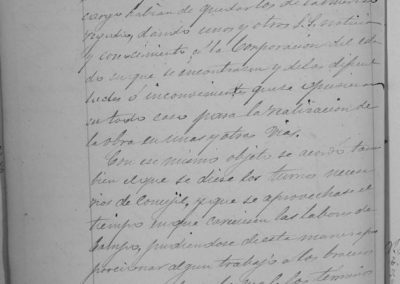 cargo habian de quedar los de
regadio, dando unos y otros S.S. noticia
y conocimiento á la Corporacion del esta
do en que se encontraran y de las dificul
tades ó inconvenientes que se opusieran
en todo caso para la realizacion de
la obra en unas y otras vias.
Con ese mismo objeto se acordó tam
bien el que se diese los turnos nece
rios de concejil, y que se aprovechase el
tiempo en que carecieran las labores de
campo, pudiendose de esta manera pro
porcionar algun trabajo á los braceros
los terminos